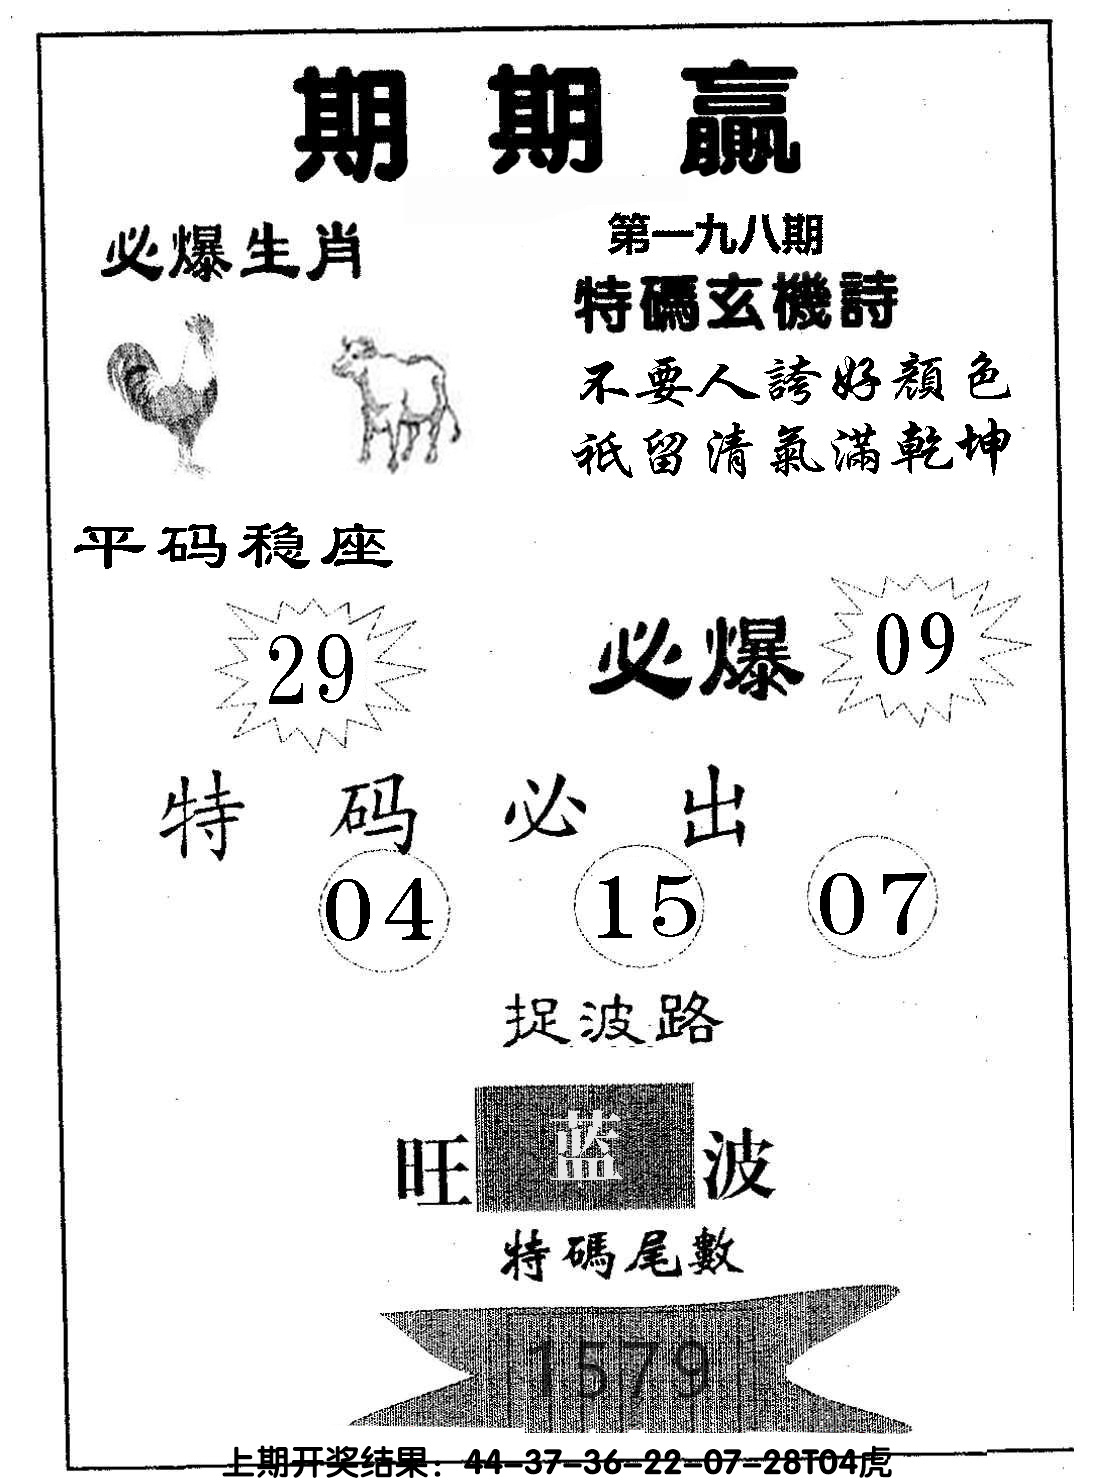 期期贏
必爆生肖
第一九八期
特碼玄機詩
不要人誇好顏色
祇留清氣滿乾坤
平码稳座
29
必爆 09
特码必出
04 15 07
捉波路
旺 蓝 波
特碼尾數
1579
上期开奖结果：44-37-36-22-07-28T04虎